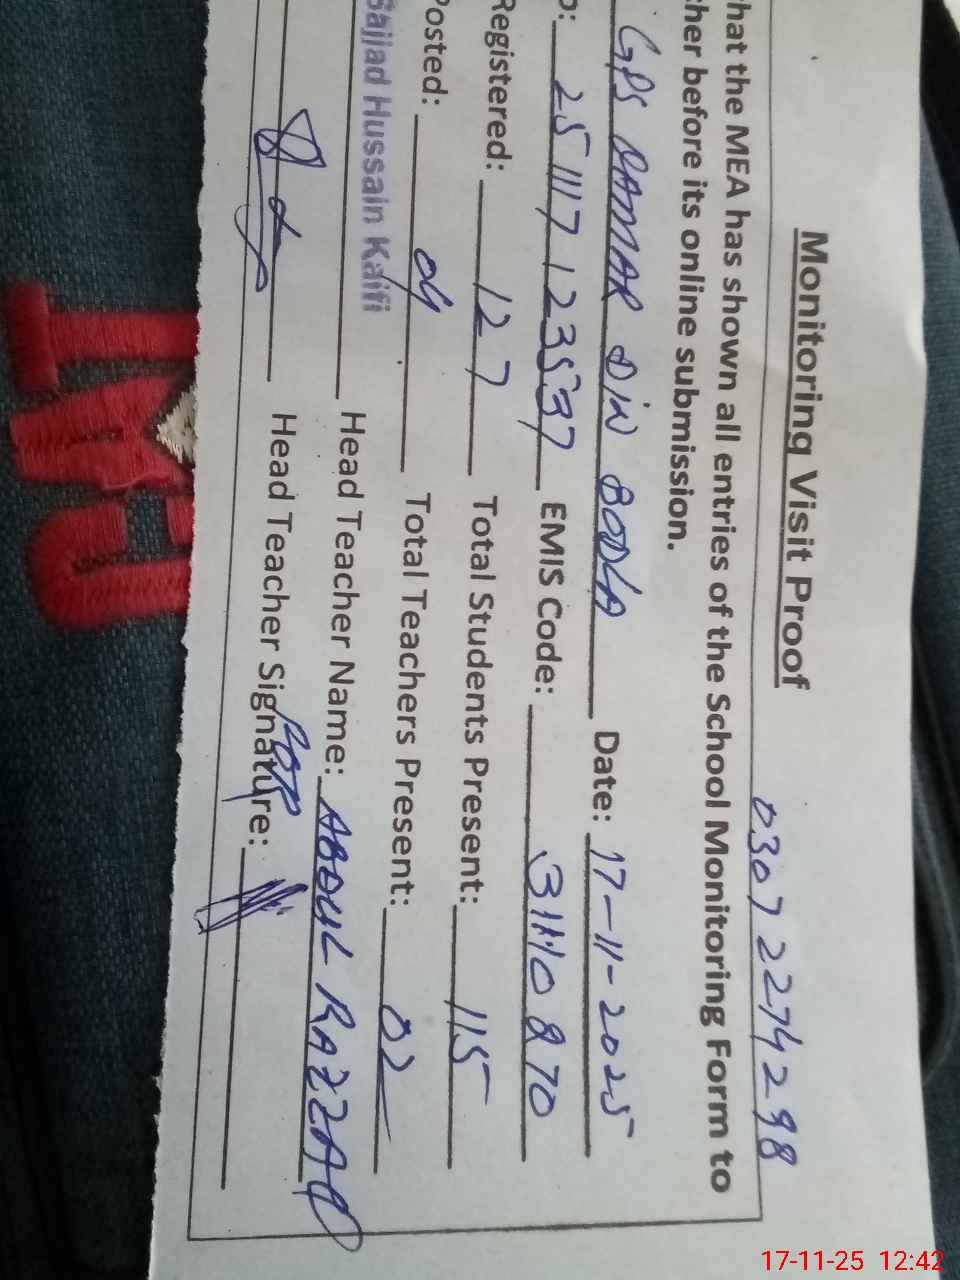 Monitoring Visit Proof
0307 2274298
hat the MEA has shown all entries of the School Monitoring Form to
her before its online submission.
GPS QAMAR DIN BODLA Date: 17-11-2025
251117123537 EMIS Code: 31110870
Registered: 127 Total Students Present: 115
Posted: 04 Total Teachers Present: 02
Sajjad Hussain Kaifi Head Teacher Name: ABDUL RAZZAQ
Head Teacher Signature:
17-11-25 12:42